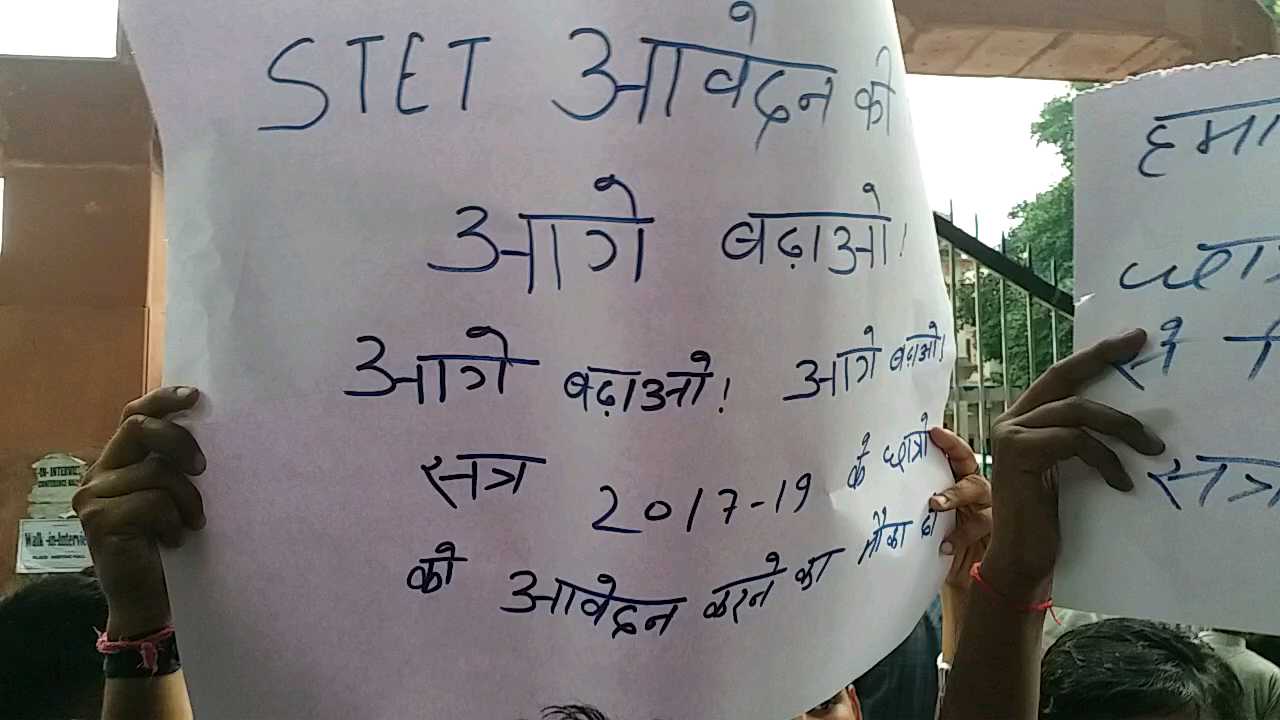 STET आवेदन को
आगे बढ़ाओ!
आगे बढ़ाओ! आगे बढ़ाओ!
सत्र 2017-19 के छात्रो
को आवेदन करने का मौका दो
हमा
से
सत्र
-IN-INTERVIEW
Walk-in-Interview